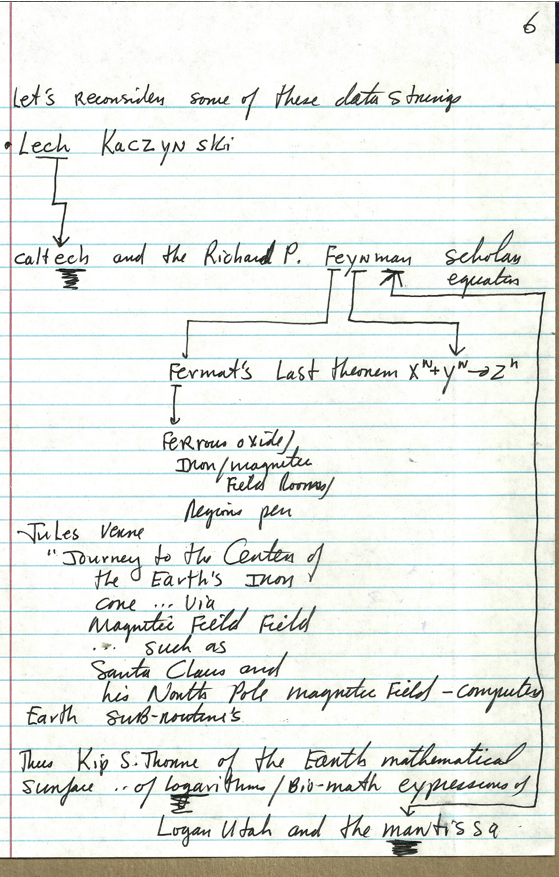 6
Let's reconsider some of these data strings
• Lech Kaczynski
caltech and the Richard P. Feynman scholar
equator
Fermat's Last theorem X^N + y^N → Z^n
Ferrous oxide/
Iron/magnetic
Field Rooms/
Regions pen
Jules Verne
"Journey to the Center of
the Earth's Iron
core ... via
Magnetic Field Field
... such as
Santa Claus and
his North Pole magnetic Field - computer
Earth sub-routine's
Thus Kip S. Thorne of the Earth mathematical
surface .. of logarithms / Bio-math expressions of
Logan Utah and the mantissa